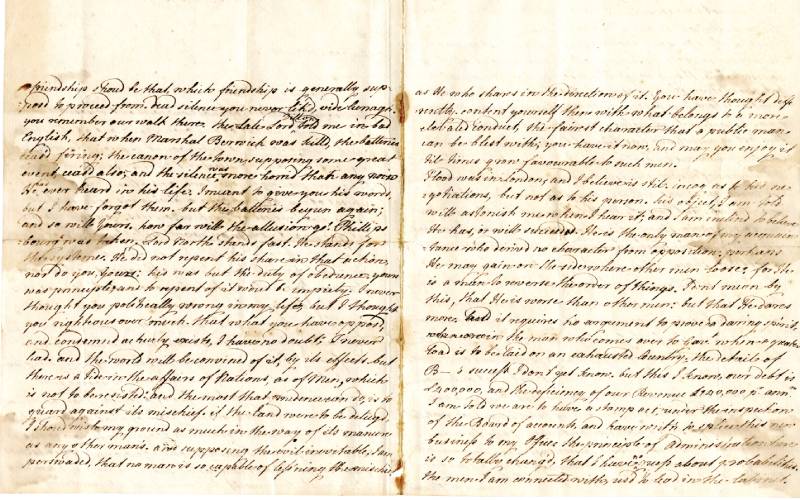 friendship shou'd be that, which friendship is generally sup-
posed to proceed from. dead silence you never lik'd, vide Armagh.
you remember our walk there. the late Lord told me in bad
English, that when Marshal Berwick was kill'd, the batteries
ceas'd firing; the canon of the town supposing some great
event ceas'd also; and the silence was more horrid that any noise
He ever heard in his life. I meant to give you his words,
but I have forgot them. but the batteries begun again;
and so will yours. how far will the allusion go? Phillips
bourg was taken. Lord North stands fast. He stands for
the systeme. He did not repent his share in that action,
nor do you, yours: his was but the duty of obedience, yours
was principle, and to repent of it wou'd be impiety. I never
thought you politically wrong in my life, but I thought
you righteous over much. that what you have opposed
and consented actually exists, I have no doubt; I never
had. and the world will be convinced of it, by its effects. but
there is a tide in the affairs of Nations, as of Men, which
is not to be resisted: and the most that prudence can do, is to
guard against its mischief. if the land were to be delug'd
I shou'd wish my ground as much in the way of its manure
as any other man's. and supposing the evil inevitable, I am
perswaded, that no man is so capable of less'ning the mischief,
as He who shares in the direction of it. You have thought diffe
rently. content yourself then with what belongs to a more
elevated conduct, the fairest character that a public man
can be blest with; you have it now, and may you enjoy it
till times grow favourable to such men.
Flood was in London; and I believe is still. incog. as to his ne
gotiations, but not as to his person. his object, I am told
will astonish me when I hear it; and I am inclin'd to believe
He has, or will succeed. He is the only man of my acquain
tance who deriv'd no character from opposition. perhaps
He may gain on the side where other men loose; for He
is a man to reverse the order of things. I don't mean by
this, that He is worse than other men; but that He dares
more. and it requires no argument to prove a daring spirit.
in the man who comes over to Gov. when a greater
load is to be laid on an exhausted Country. the details of
B—'s success I don't yet know. but this I know, our debt is
and the deficiency of our Revenue £240,000 pr. ann.
I am told we are to have a stamp act, under the inspection
of the Board of accounts, and have writ to this new
business to my Office. the principle of Administration here
is so totally chang'd, that I have no guess about probabilities.
the men I am connected with, us'd to lead in the Cabinet.